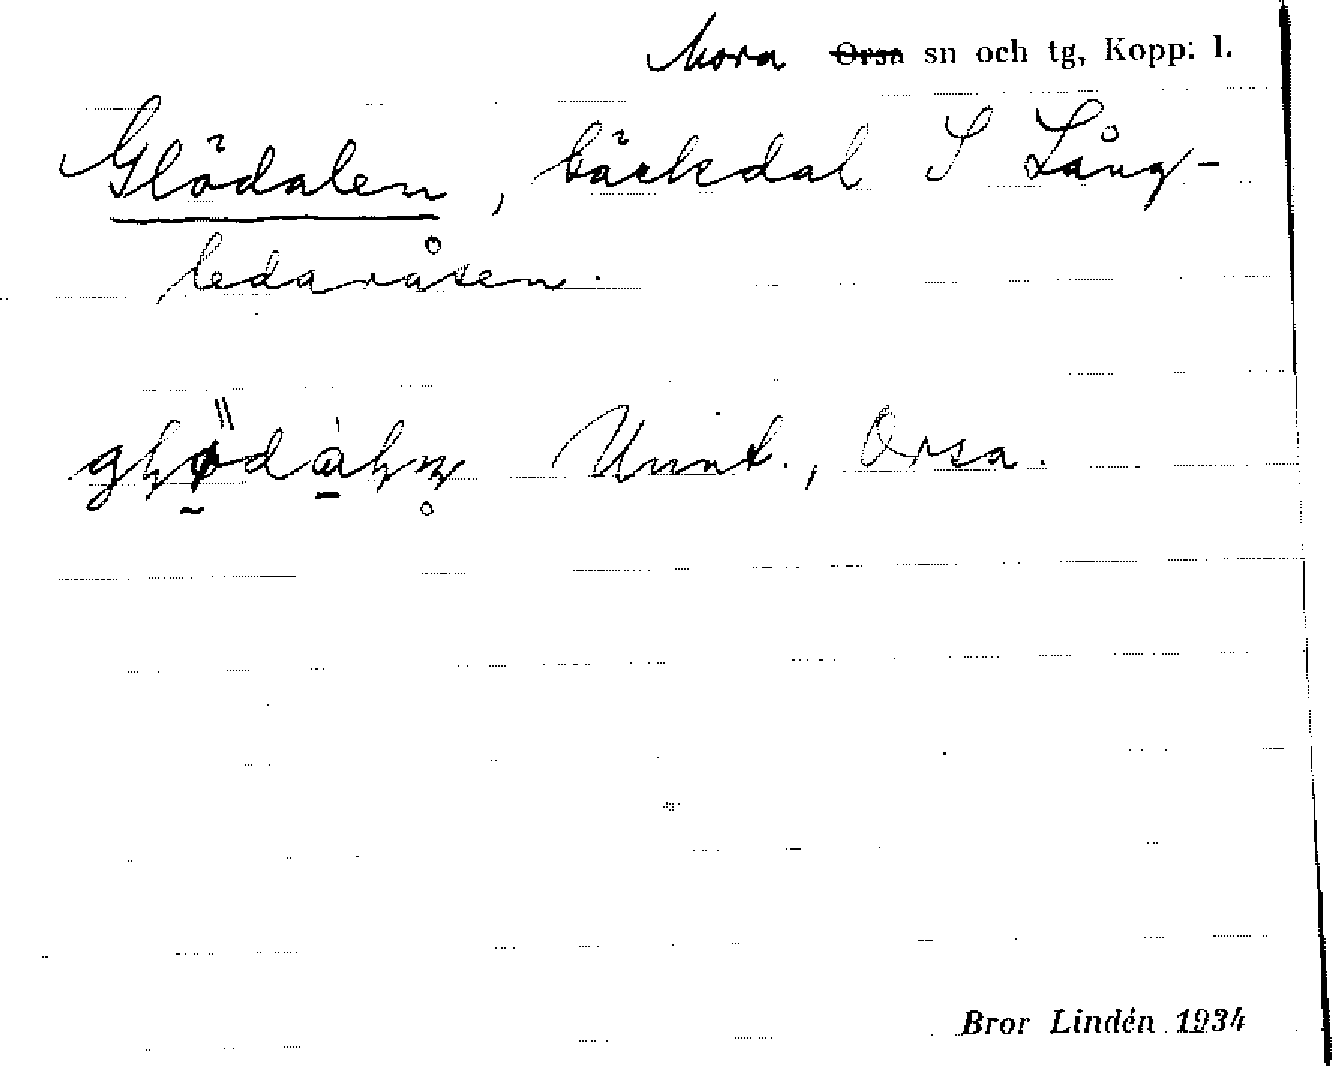 Mora Orsa sn och tg, Kopp. l.
Glödalen, bäckdal S Lång-
ledaråsen.
Orsa.
Bror Lindén 1934